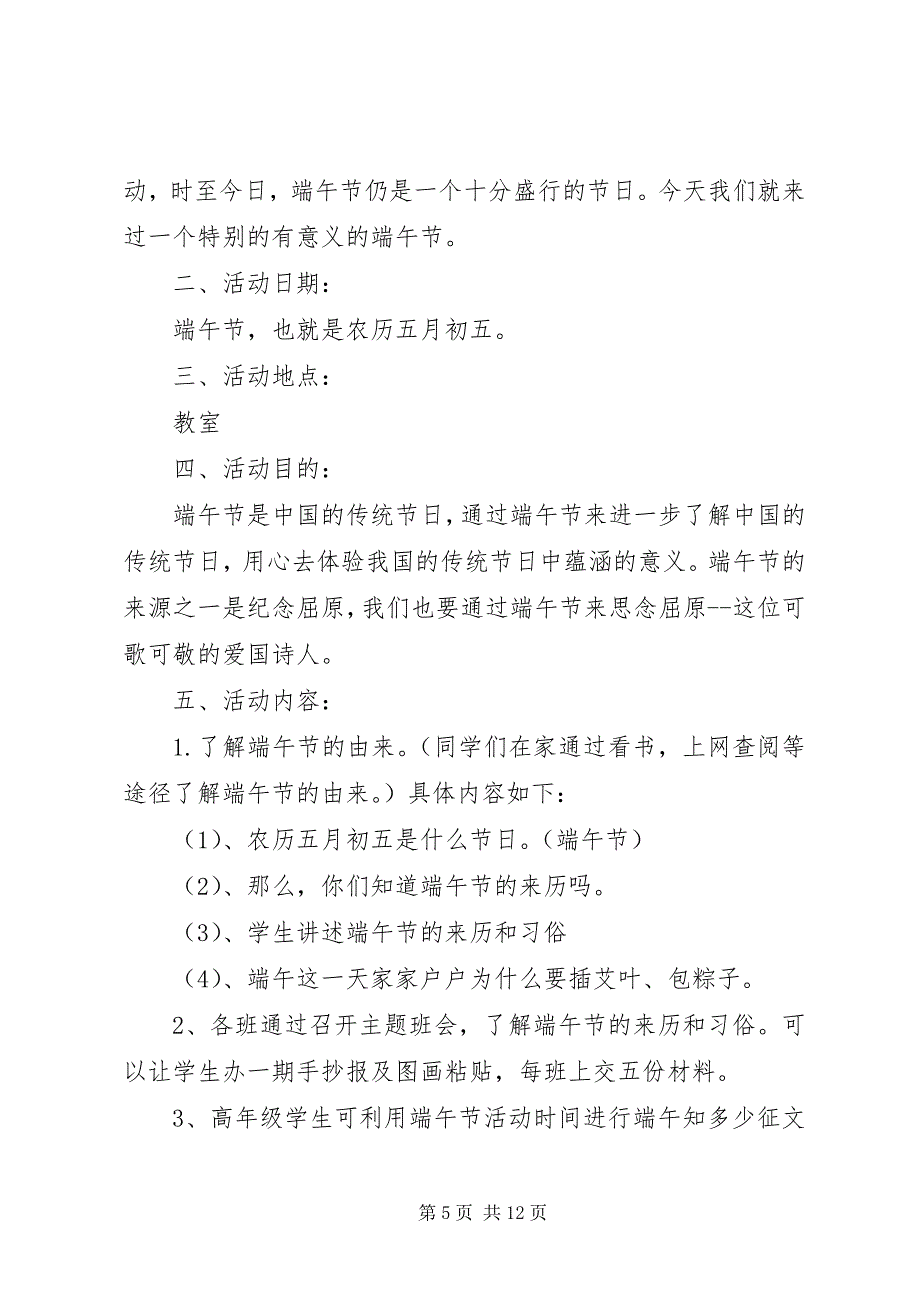 动，时至今日，端午节仍是一个十分盛行的节日。今天我们就来
过一个特别的有意义的端午节。
二、活动日期：
端午节，也就是农历五月初五。
三、活动地点：
教室
四、活动目的：
端午节是中国的传统节日，通过端午节来进一步了解中国的
传统节日，用心去体验我国的传统节日中蕴涵的意义。端午节的
来源之一是纪念屈原，我们也要通过端午节来思念屈原--这位可
歌可敬的爱国诗人。
五、活动内容：
1.了解端午节的由来。（同学们在家通过看书，上网查阅等
途径了解端午节的由来。）具体内容如下：
（1）、农历五月初五是什么节日。（端午节）
（2）、那么，你们知道端午节的来历吗。
（3）、学生讲述端午节的来历和习俗
（4）、端午这一天家家户户为什么要插艾叶、包粽子。
2、各班通过召开主题班会，了解端午节的来历和习俗。可
以让学生办一期手抄报及图画粘贴，每班上交五份材料。
3、高年级学生可利用端午节活动时间进行端午知多少征文
第 5 页 共 12 页